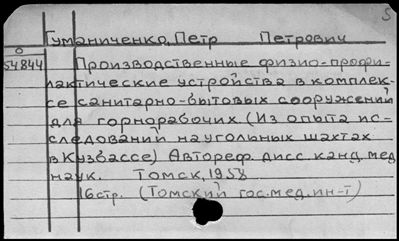 5
Гуманиченко, Петр Петрович
54844 Производственные физио-профи-
лактические устройства в комплек-
се санитарно-бытовых сооружений
для горнорабочих (Из опыта ис-
следований на угольных шахтах
в Кузбассе) Автореф. дисс. канд. мед.
наук. Томск, 1958
16 стр. (Томский гос. мед. ин-т)